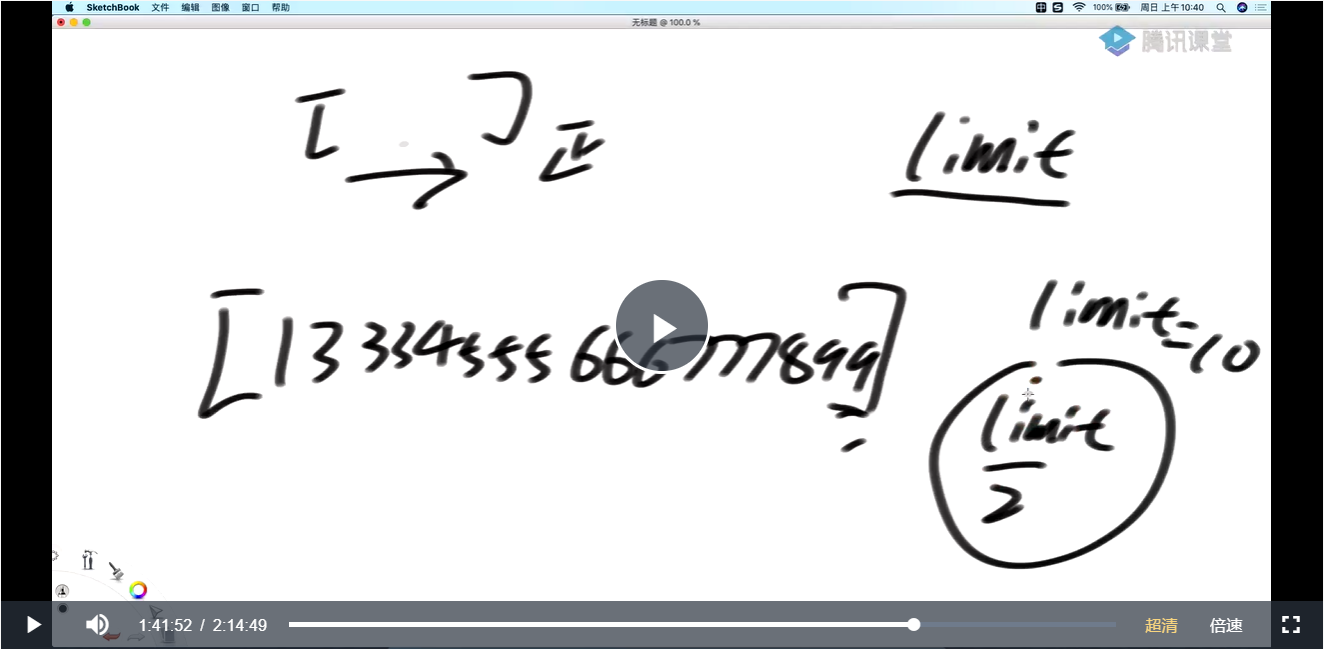 SketchBook 文件 编辑 图像 窗口 帮助 100% 周日 上午10:40
无标题 @ 100.0 %
腾讯课堂
[ ] 正
limit
[1 3 3 3 4 5 5 5 6 6 6 7 7 7 8 9 9]
limit=10
limit
2
1:41:52 / 2:14:49 超清 倍速